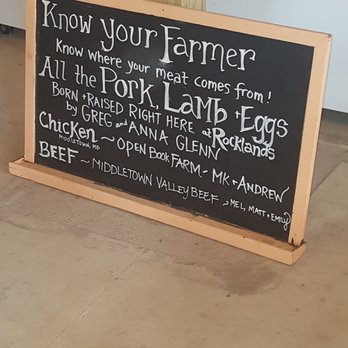 Know your Farmer
Know where your meat comes from!
All the Pork, Lamb + Eggs
Born + Raised Right Here at Rocklands
by Greg and Anna Glenn
Chicken ~ Open Book Farm - MK + Andrew
Middletown, MD
Beef ~ Middletown Valley Beef ~ Mel, Matt + Emily